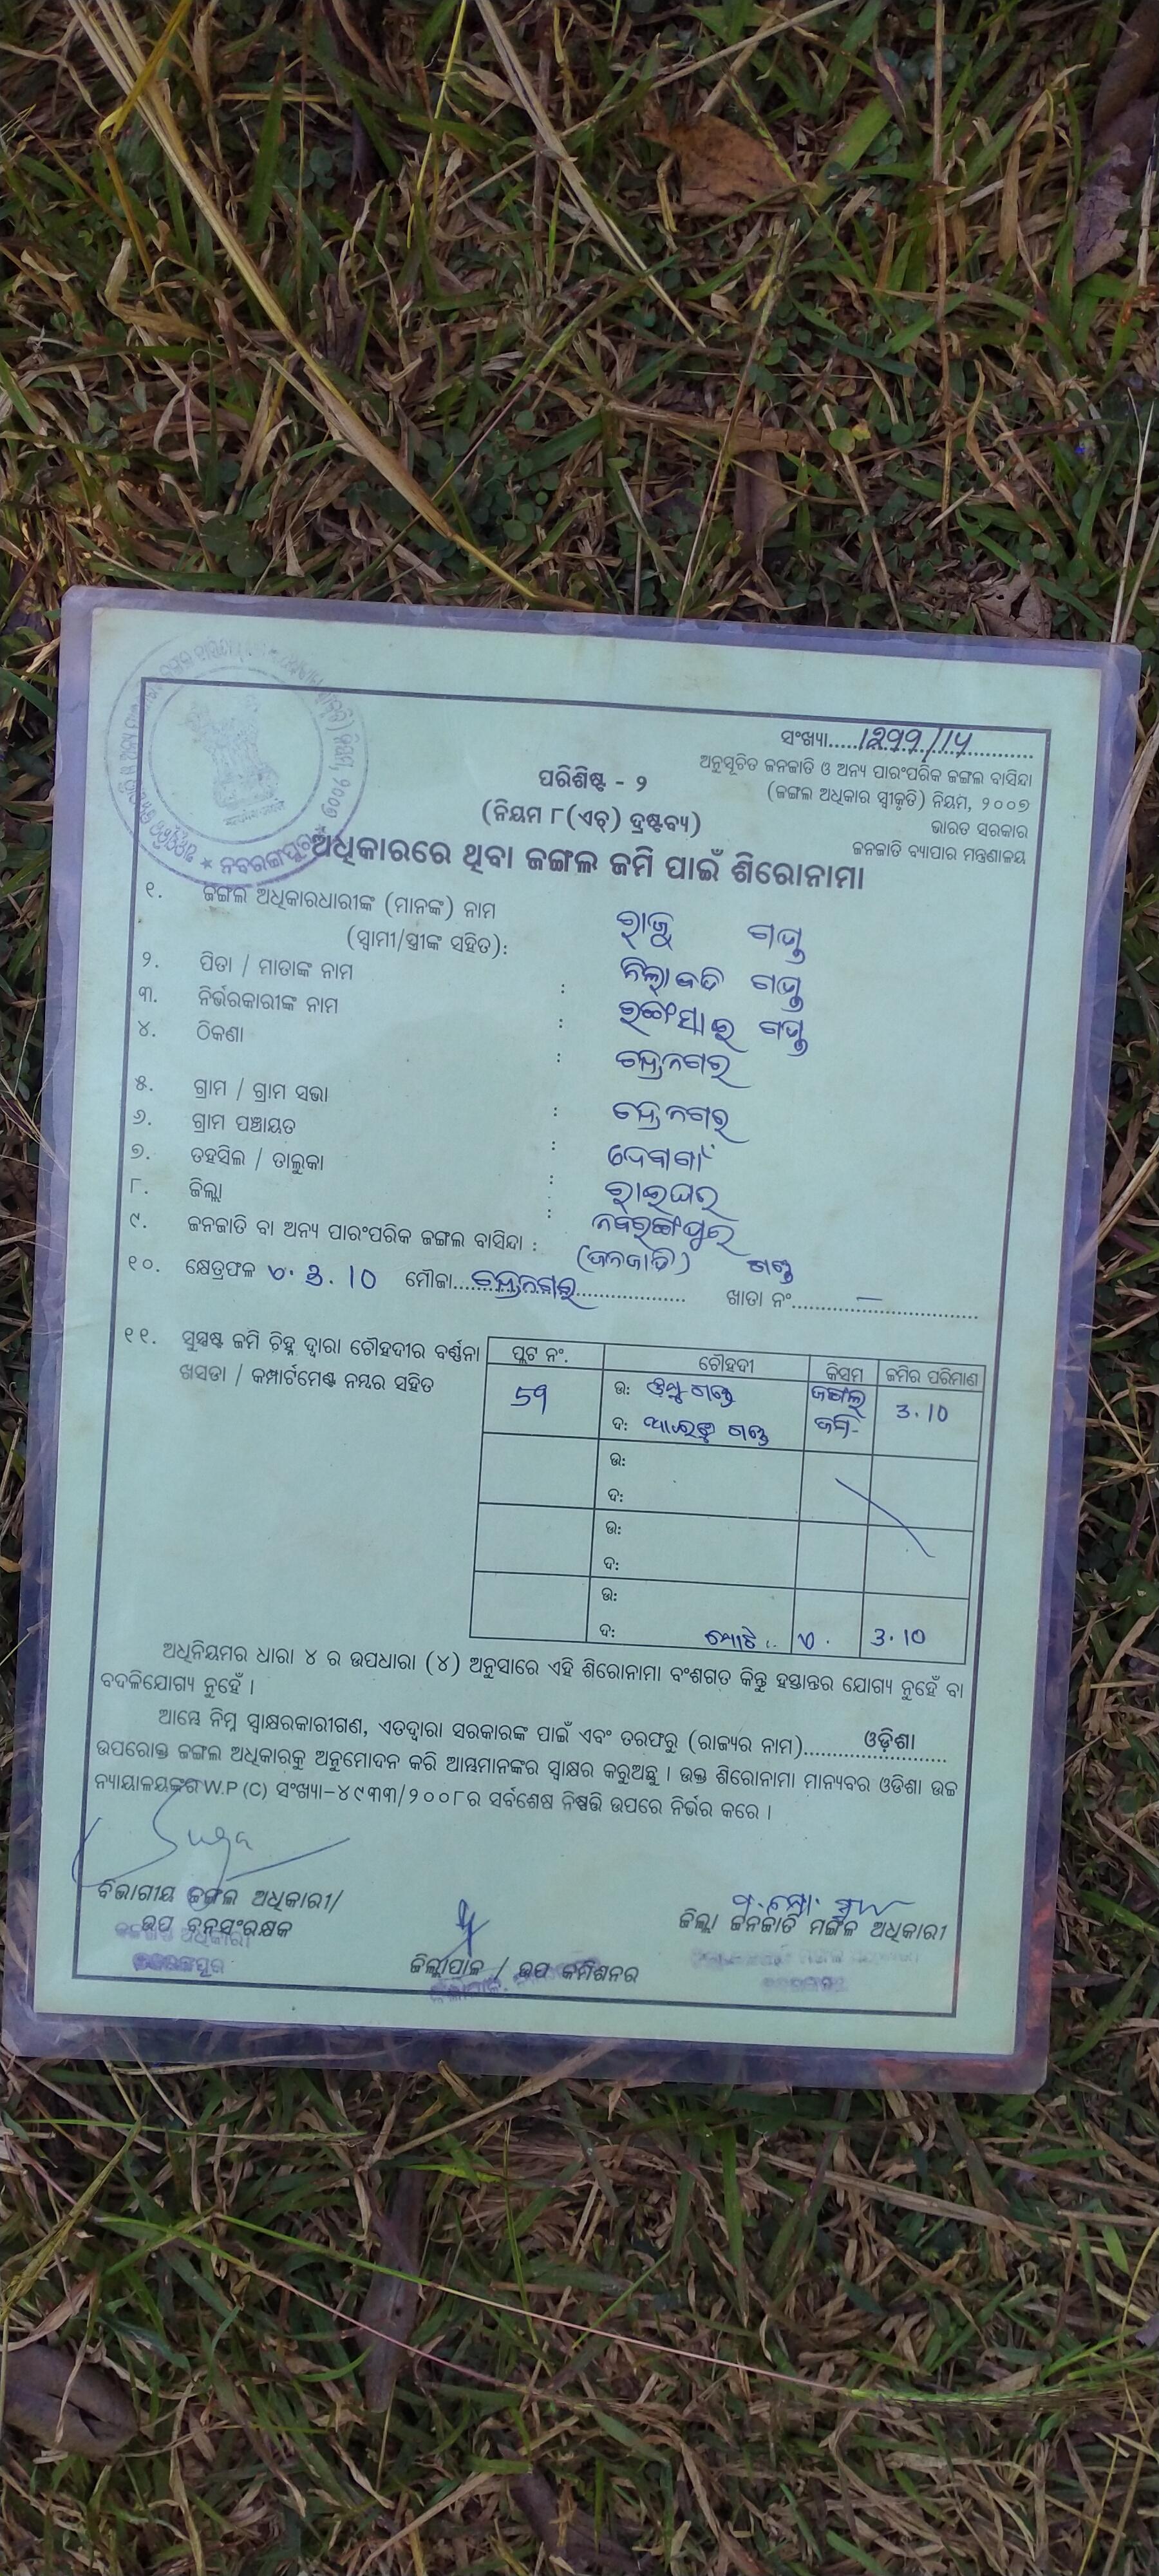 ସଂଖ୍ୟା.....1299/14
ଅନୁସୂଚିତ ଜନଜାତି ଓ ଅନ୍ୟ ପାରଂପରିକ ଜଙ୍ଗଲ ବାସିନ୍ଦା
(ଜଙ୍ଗଲ ଅଧିକାର ସ୍ୱୀକୃତି) ନିୟମ, ୨୦୦୭
ଭାରତ ସରକାର
ଜନଜାତି ବ୍ୟାପାର ମନ୍ତ୍ରଣାଳୟ
ପରିଶିଷ୍ଟ - ୨
(ନିୟମ ୮(ଏଚ୍) ଦ୍ରଷ୍ଟବ୍ୟ)
ଅଧିକାରରେ ଥିବା ଜଙ୍ଗଲ ଜମି ପାଇଁ ଶିରୋନାମା
୧. ଜଙ୍ଗଲ ଅଧିକାରଧାରୀଙ୍କ (ମାନଙ୍କ) ନାମ
(ସ୍ୱାମୀ/ସ୍ତ୍ରୀଙ୍କ ସହିତ): ରାଜୁ ଗଣ୍ଡ
୨. ପିତା / ମାତାଙ୍କ ନାମ : ଗଣ୍ଡ
୩. ନିର୍ଭରକାରୀଙ୍କ ନାମ : ଗଣ୍ଡ
୪. ଠିକଣା :
୫. ଗ୍ରାମ / ଗ୍ରାମ ସଭା :
୬. ଗ୍ରାମ ପଞ୍ଚାୟତ : ଦେବୀଗାଁ
୭. ତହସିଲ / ତାଲୁକା : ରାଇଘର
୮. ଜିଲ୍ଲା : ନବରଙ୍ଗପୁର
୯. ଜନଜାତି ବା ଅନ୍ୟ ପାରଂପରିକ ଜଙ୍ଗଲ ବାସିନ୍ଦା : (ଜନଜାତି) ଗଣ୍ଡ
୧୦. କ୍ଷେତ୍ରଫଳ ଏ. 3.10 ମୌଜା..... ଖାତା ନଂ..... —
୧୧. ସୁସ୍ପଷ୍ଟ ଜମି ଚିହ୍ନ ଦ୍ୱାରା ଚୌହଦୀର ବର୍ଣ୍ଣନା
ଖସଡା / କମ୍ପାର୍ଟମେଣ୍ଟ ନମ୍ବର ସହିତ
ପ୍ଲଟ ନଂ. ଚୌହଦୀ କିସମ ଜମିର ପରିମାଣ
59 ଉ: ଗଣ୍ଡ ଜଙ୍ଗଲ 3.10
ଦ: ଗଣ୍ଡ ଜମି
ଉ:
ଦ:
ଉ:
ଦ:
ଉ:
ଦ: ମୋଟ ଏ. 3.10
ଅଧିନିୟମର ଧାରା ୪ ର ଉପଧାରା (୪) ଅନୁସାରେ ଏହି ଶିରୋନାମା ବଂଶଗତ କିନ୍ତୁ ହସ୍ତାନ୍ତର ଯୋଗ୍ୟ ନୁହେଁ ବା
ବଦଳିଯୋଗ୍ୟ ନୁହେଁ ।
ଆମ୍ଭେ ନିମ୍ନ ସ୍ୱାକ୍ଷରକାରୀଗଣ, ଏତଦ୍ୱାରା ସରକାରଙ୍କ ପାଇଁ ଏବଂ ତରଫରୁ (ରାଜ୍ୟର ନାମ)..... ଓଡ଼ିଶା
ଉପରୋକ୍ତ ଜଙ୍ଗଲ ଅଧିକାରକୁ ଅନୁମୋଦନ କରି ଆମ୍ଭମାନଙ୍କର ସ୍ୱାକ୍ଷର କରୁଅଛୁ । ଉକ୍ତ ଶିରୋନାମା ମାନ୍ୟବର ଓଡିଶା ଉଚ୍ଚ
ନ୍ୟାୟାଳୟଙ୍କର W.P (C) ସଂଖ୍ୟା-୪୯୩୩/୨୦୦୮ର ସର୍ବଶେଷ ନିଷ୍ପତ୍ତି ଉପରେ ନିର୍ଭର କରେ ।
ବିଭାଗୀୟ ଜଙ୍ଗଲ ଅଧିକାରୀ/
ଉପ ବନସଂରକ୍ଷକ
ଜିଲ୍ଲାପାଳ / ଉପ କମିଶନର
ଜିଲ୍ଲା ଜନଜାତି ମଙ୍ଗଳ ଅଧିକାରୀ